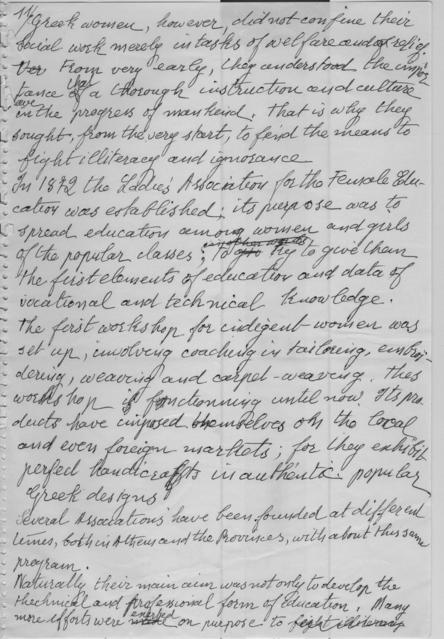 Greek women, however, did not confine their
social work merely in tasks of welfare and of
From very early, they understood the impor-
tance of a thorough instruction and culture
have
in the progress of mankind. That is why they
sought, from the very start, to find the means to
fight illiteracy and ignorance
In 1872 the Ladies' Association for the Female Edu-
cation was established; its purpose was to
spread education among women and girls
in other words
of the popular classes; to try to give them
the first elements of education and data of
vocational and technical knowledge.
The first workshop for indigent women was
set up, involving coaching in tailoring, embroi-
dering, weaving and carpet-weaving. This
workshop is functionning until now. Its pro-
ducts have imposed themselves on the local
and even foreign markets; for they exhibit
perfect handicrafts in authentic popular
Greek designs
Several Associations have been founded at different
times, both in Athens and the Provinces, with about this same
program.
Naturally their main aim was not only to develop the
thechnical and professional form of Education. Many
exerted
more efforts were on purpose to fight illiteracy